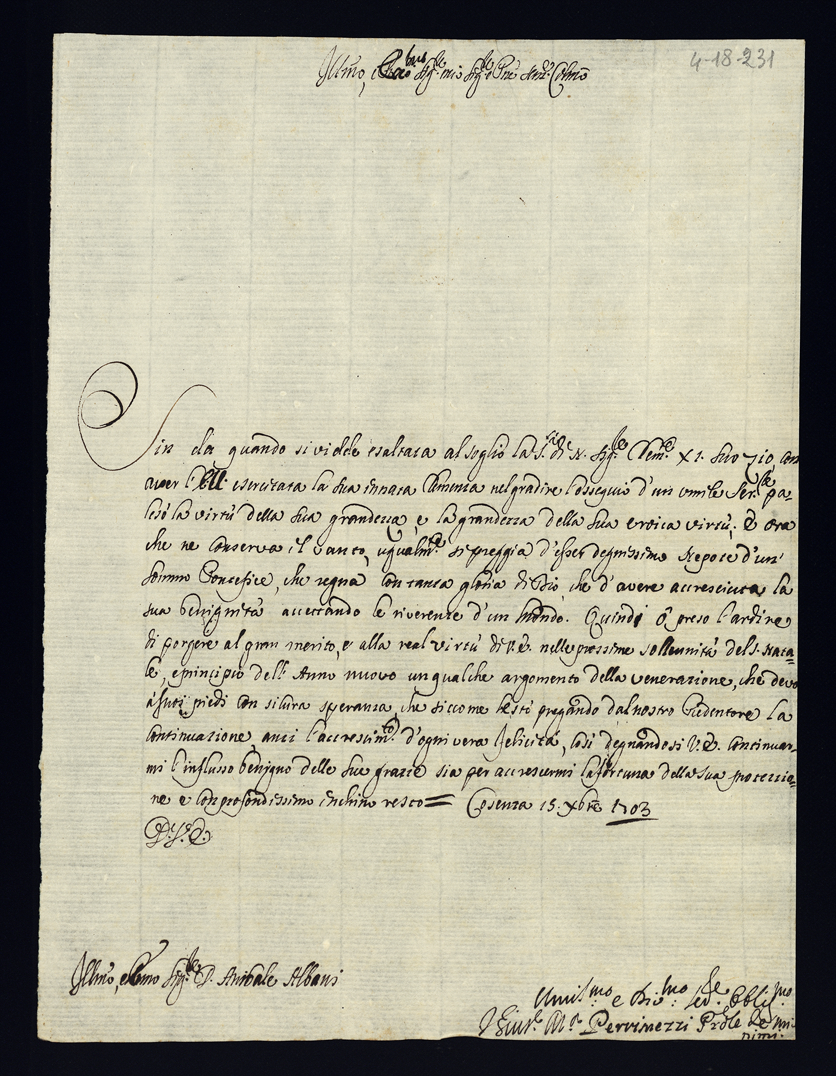 4-18-231
Illmo, e Sig.re mio Sig.re e Pne Colmo
Sin da quando si vidde esaltata al soglio la S.tà di N. Sig.re Clem.te XI. suo zio, con
aver l' esercitata la sua innata Clemenza nel gradire l'ossequio d'un umile Ser.re pa-
lesò la virtù della sua grandezza, e la grandezza della sua eroica virtù; E ora
che ne conserva il vanto, ugualm.te si preggia d'esser degnissimo Nepote d'un
sommo Pontefice, che regna con tanta gloria di Dio, che d'avere accresciuta la
sua benignità accettando le riverenze d'un Mondo. Quindi ò preso l'ardire
di porgere al gran merito, e alla real virtù di V.E. nelle prossime sollennità del S. Nata-
le, e principio dell' Anno nuovo un qualche argomento della venerazione, che devo
a suoi piedi con sicura speranza, che siccome resto pregando dal nostro Redentore la
continuazione anzi l'accrescim.to d'ogni vera felicità, così degnandosi V.E. continuar-
mi l'influsso benigno delle sue grazie sia per accrescermi la fortuna della sua protezzio-
ne e con profondissimo inchino resto= Cosenza 15. Xbre 1703
D. V. E.
Illmo, e Sig.re D. Anibale Albani
Umil.mo e Div.mo Se.re Oblig.mo
Perrimezzi Prdle de Mi-
nimi.